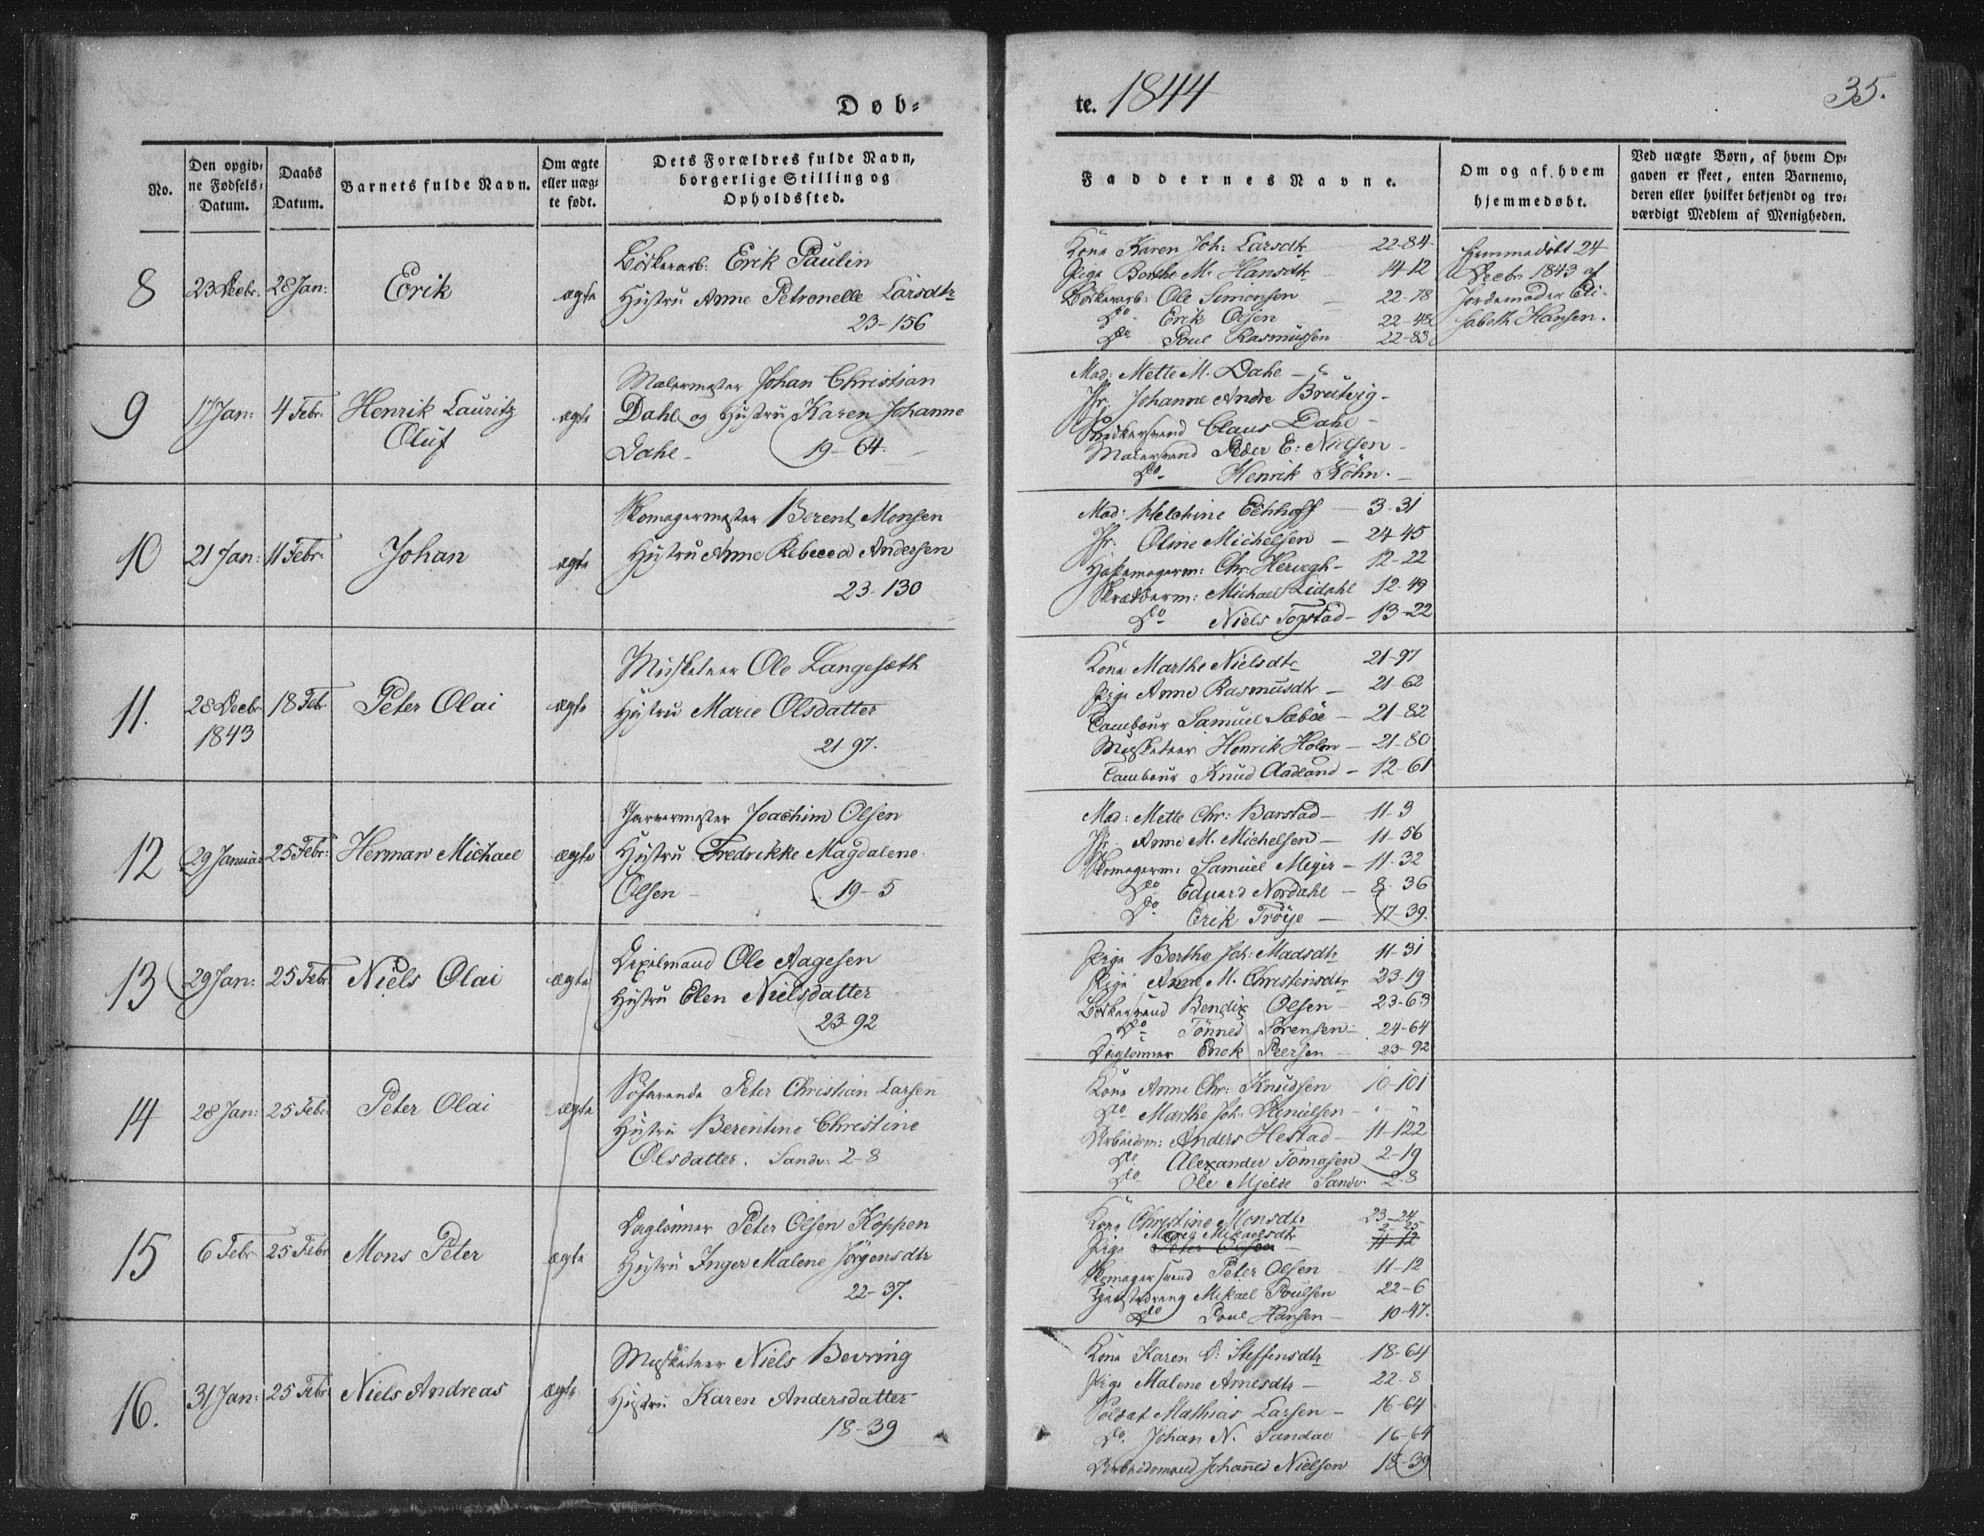 Døb-
te. 1844
35.
No.
Den opgiv-
ne Fødsels-
Datum.
Daabs
Datum.
Barnets fulde Navn.
Om ægte
eller uæg-
te født.
Dets Forældres fulde Navn,
borgerlige Stilling og
Opholdssted.
Faddernes Navne.
Om og af hvem
hjemmedøbt.
Ved uægte Børn, af hvem Op-
gaven er skeet, enten Barnemo-
deren eller hvilket bekjendt og tro-
værdigt Medlem af Menigheden.
8
23 Decbr.
28 Jan:
Erik
ægte
Bødkerarb: Erik Paulin
Hustru Anne Petronelle Larsdtr
23-156
Kone Karen Joh: Larsdtr 22-84
Pige Berthe M. Hansdtr 14-12
Bødkerarb: Ole Simonsen 22-78
Do Erik Olsen 22-48
Do Poul Rasmussen 22-83
Hjemmedøbt 24
Decbr. 1843 af
Jordemoder Eli-
sabeth Hansen.
9
17 Jan:
4 Febr.
Henrik Lauritz
Oluf
ægte
Malermester Johan Christian
Dahl og Hustru Karen Johanne
Dahl-
19-64.
Mad: Mette M. Dahl
Jfr. Johanne Andre Brutvig-
Claus Dahl-
Malersvend Peder E: Nielsen-
Do- Henrik Köhn.
10
21 Jan:
11 Febr.
Johan
ægte
Skomagermester Berent Monsen
Hustru Anne Rebecca Andersen
23-130
Mad: Melchine Echhoff- 3-31
Jfr. Oline Michelsen- 24-45
Chr. Hervegh- 12-22
Skrædderm: Michael Lidahl 12-49
Do Niels Togstad- 13-22
11.
28 Decbr
1843
18 Feb.
Peter Olai
ægte
Musketeer Ole Langesæth
Hustru Marie Olsdatter
21-97.
Kone Marthe Nielsdtr 21-97
Pige Anne Rasmusdtr- 21-62
Tambour Samuel Sæbøe- 21-82
Musketeer Henrik Holm- 21-80
Tambour Knud Aadland- 12-61
12
29 Januar
25 Febr.
Herman Michael
ægte
Garvermester Joachim Olsen
Hustru Fredrikke Magdalene
Olsen-
19-5
Mad: Mette Chr: Barstad- 11-3
Jfr. Anne M. Michelsen- 11-56
Skomagerm: Samuel Meyer- 11-32
Do Eduard Nordahl- 8-36
Do Erik Tröye- 17-39.
13
29 Jan:
25 Feb.
Niels Olai
ægte
Ole Aagesen
Hustru Elen Nielsdatter
23-92
Pige Berthe Joh: Madsdtr 11-31
Pige Anne M. Christensdtr 23-19
Bødkersvend Bendix Olsen- 23-63
Do Tönnes Sørensen- 24-64
Daglønner Enok Peersen- 23-92
14
28 Jan:
25 Febr.
Peter Olai
ægte
Søfarende Peter Christian Larsen
Hustru Berentine Christine
Olsdatter. Sandv: 2-8
Kone Anne Chr: Knudsen 10-101
Do Marthe Joh: Danielsen- " "
Arbeidsm: Anders Hestad- 11-122
Do Alexander Tomasen 2-19
Do Ole Mjelde Sandv. 2-8
15
6 Febr.
25 Febr
Mons Peter
ægte
Daglønner Peter Olsen Koppen
Hustru Inger Malene Jörgensdtr
22-37.
Kone Christine Monsdtr 23-24
Maria Mikaelsdtr 2-25
Pige Peter Olsen- 11-12
Skomagersvend Peter Olsen 11-12
Tjenstedreng Mikael Poulsen 22-6
Do Poul Hansen- 10-47.
16.
31 Jan:
25 Febr.
Niels Andreas
ægte
Musketeer Niels Bevring
Hustru Karen Andersdatter
18-39
Kone Karen D: Steffensdtr 18-64
Pige Malene Arnesdtr- 22-8
Soldat Mathias Larsen- 16-64
Do. Johan N. Sandal- 16-64
Arbeidsmand Johannes Nielsen 18-39